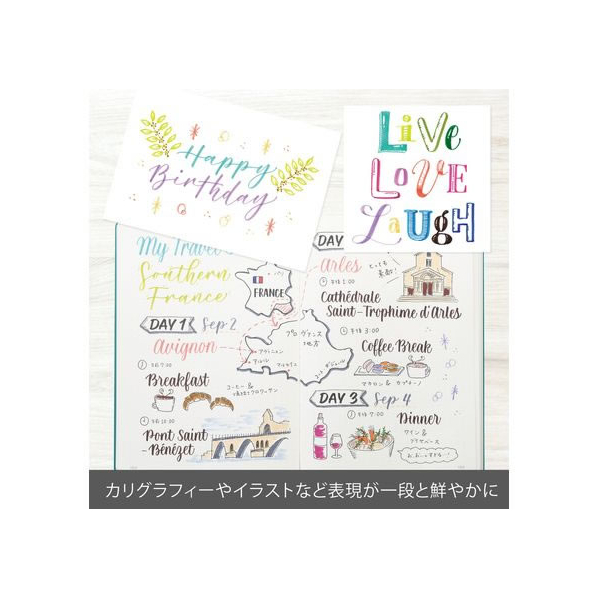 Happy
Birthday
LiVE
LOVE
LaUgH
My Travel
Southern
France
FRANCE
パリ
DAY
Arles
とっても
素敵!
Cathédrale
Saint-Trophime d'Arles
DAY 1 Sep 2
Avignon
プロヴァンス
地方
アヴィニョン
アルル
マルセイユ
Coffee Break
マカロン & カプチーノ
Breakfast
コーヒー &
Pont Saint-
Bénézet
DAY 3 Sep 4
Dinner
ワイン &
カリグラフィーやイラストなど表現が一段と鮮やかに